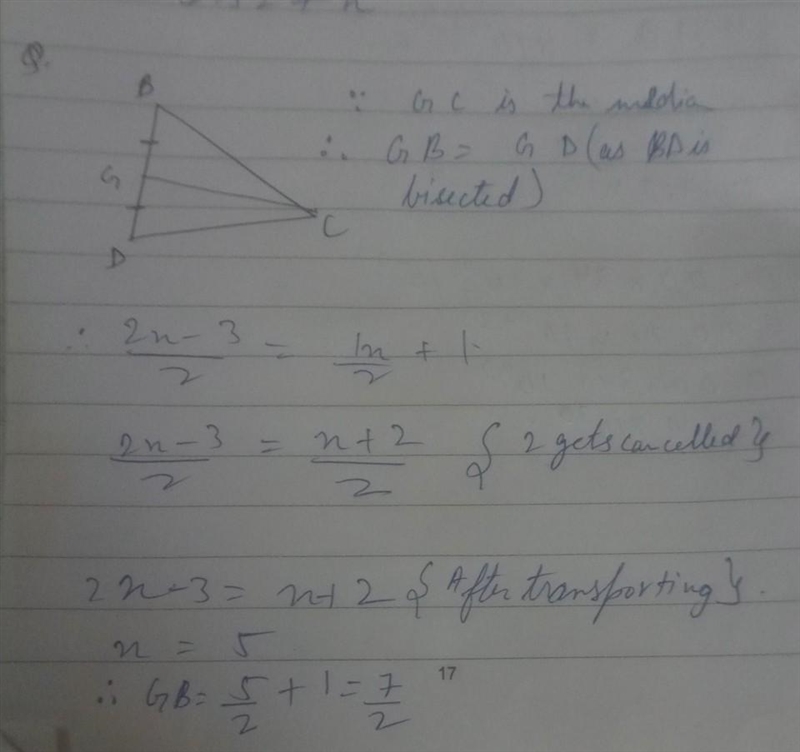 Q.
B
G
D
C
∵ GC is the media
∴ GB = GD (as BD is
bisected)
∴ 2n - 3 / 2 = 1n / 2 + 1
2n - 3 / 2 = n + 2 / 2 { 2 gets cancelled }
2n - 3 = n + 2 { After transporting }.
n = 5
∴ GB = 5 / 2 + 1 = 7 / 2
17